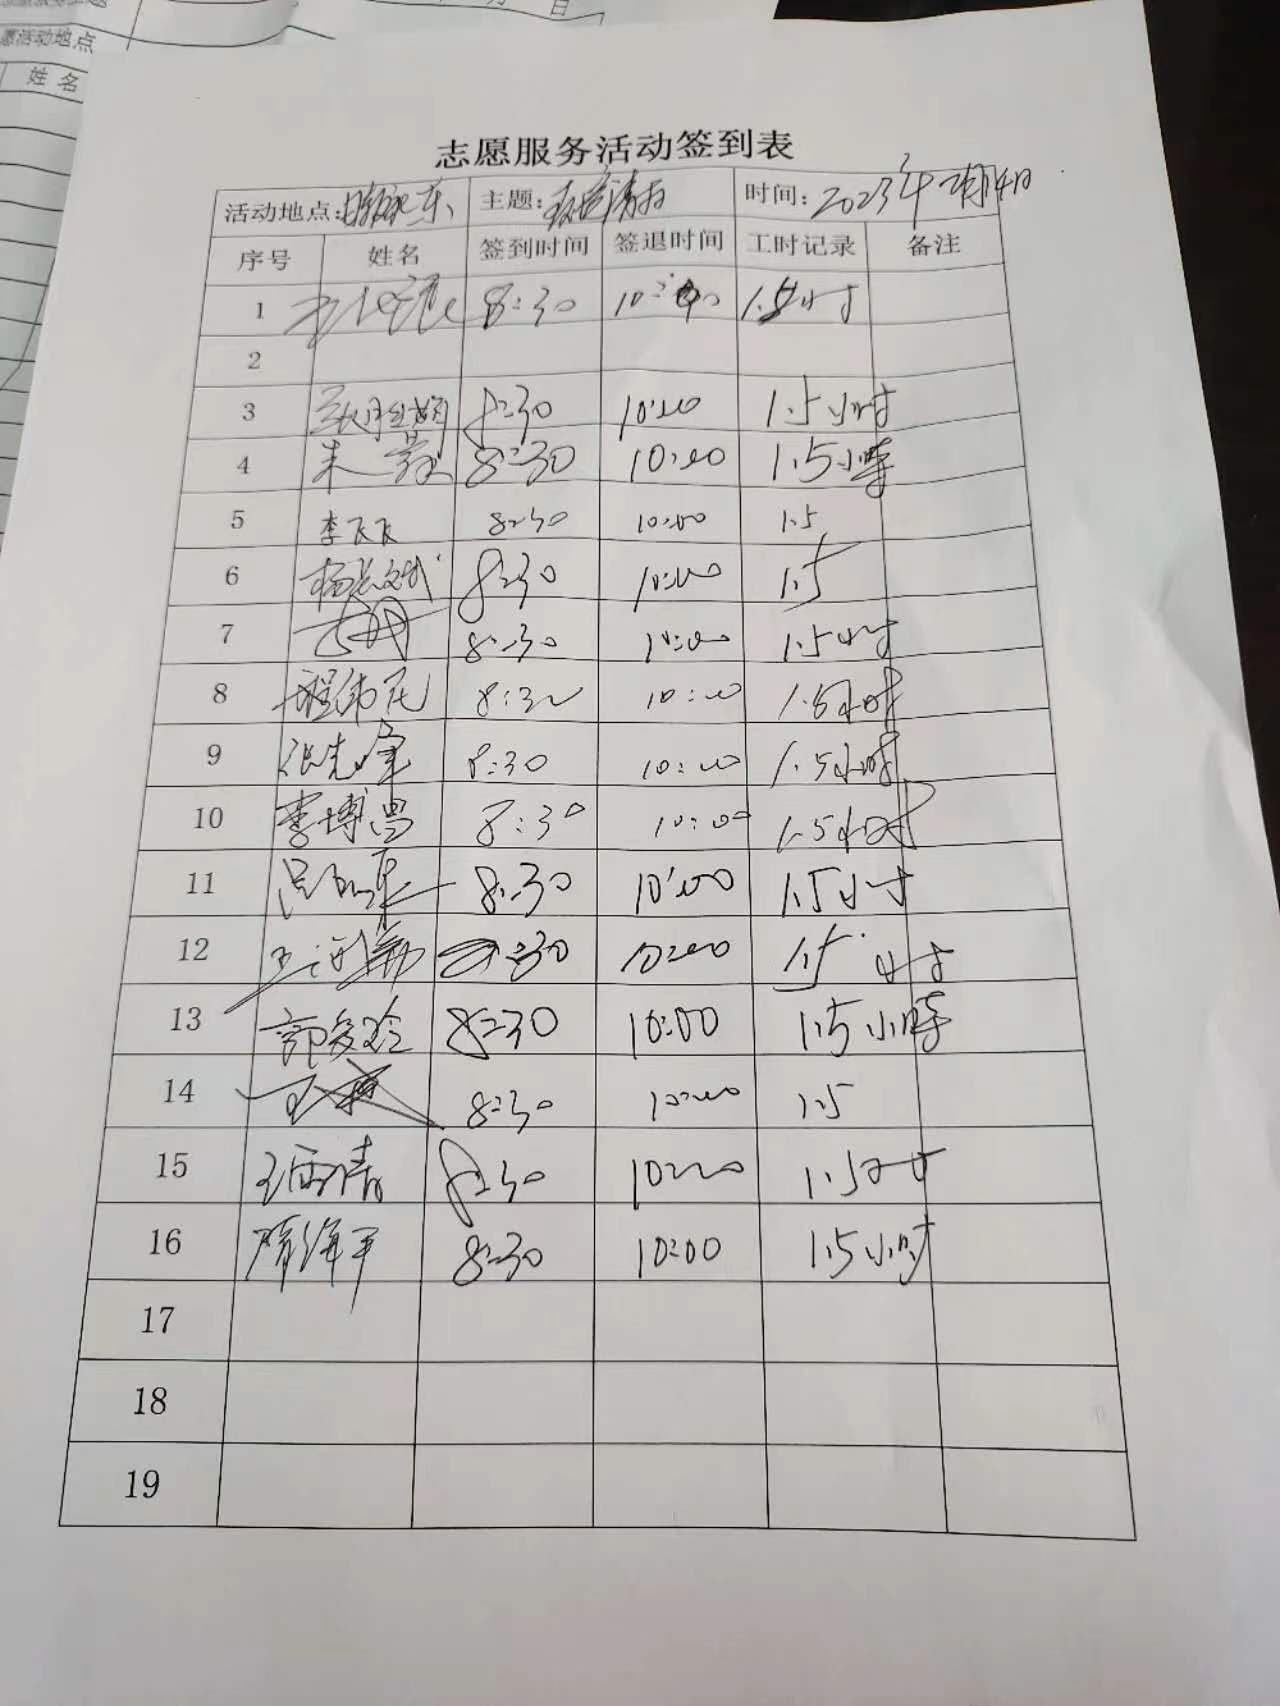 日
愿活动地点
姓名
志愿服务活动签到表
活动地点: 东 主题: 清扫 时间: 2023年 月4日
序号 姓名 签到时间 签退时间 工时记录 备注
1 8:30 10:00 1.5小时
2
3 8:30 10:00 1.5小时
4 朱 8:30 10:00 1.5小时
5 李飞飞 8:30 10:00 1.5
6 杨 8:30 10:00 1.5
7 8:30 10:00 1.5小时
8 程伟 8:30 10:00 1.5小时
9 张先峰 8:30 10:00 1.5小时
10 李博昌 8:30 10:00 1.5小时
11 8:30 10:00 1.5小时
12 王 8:30 10:00 1.5小时
13 郭 玲 8:30 10:00 1.5小时
14 王 8:30 10:00 1.5
15 王雨清 8:30 10:00 1.5小时
16 隋海平 8:30 10:00 1.5小时
17
18
19